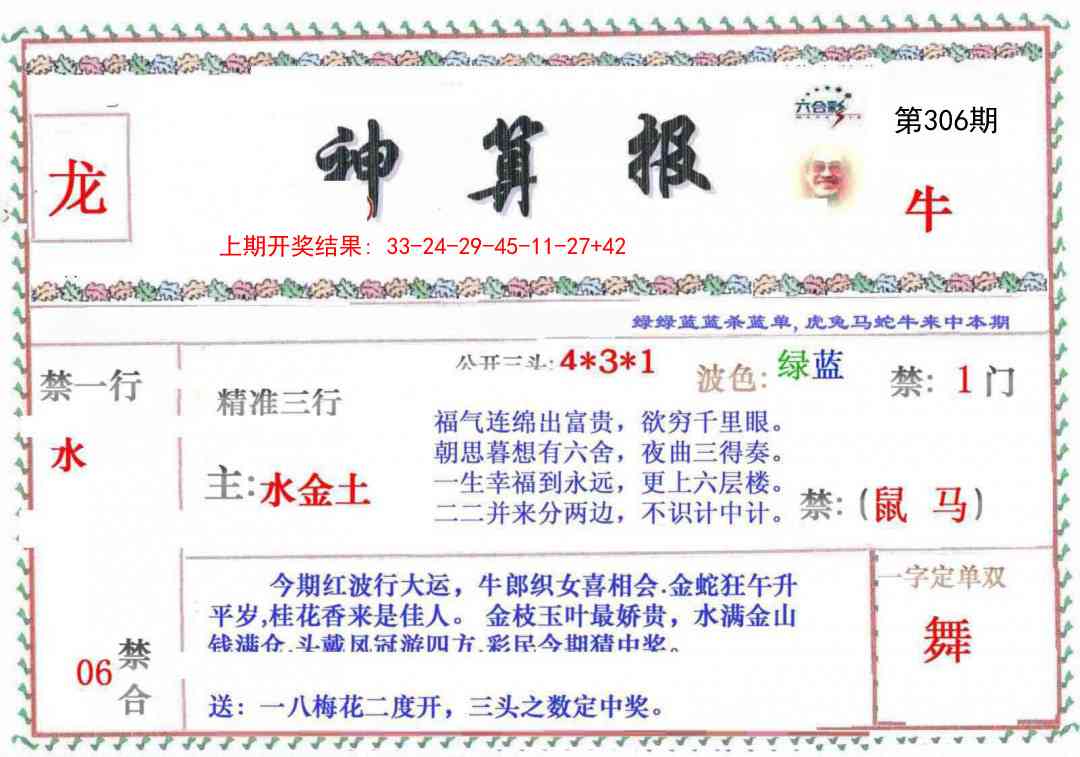 六合彩
第306期
龙
神算报
牛
上期开奖结果: 33-24-29-45-11-27+42
绿绿蓝蓝杀蓝单,虎兔马蛇牛来中本期
公开三头: 4*3*1
波色: 绿蓝
禁: 1门
禁一行
水
精准三行
主:水金土
福气连绵出富贵，欲穷千里眼。
朝思暮想有六舍，夜曲三得奏。
一生幸福到永远，更上六层楼。
二二并来分两边，不识计中计。
禁:(鼠 马)
今期红波行大运，牛郎织女喜相会.金蛇狂午升
平岁,桂花香来是佳人。 金枝玉叶最娇贵，水满金山
钱满仓.头戴凤冠游四方.彩民今期猜中奖。
送：一八梅花二度开，三头之数定中奖。
一字定单双
舞
06 禁合